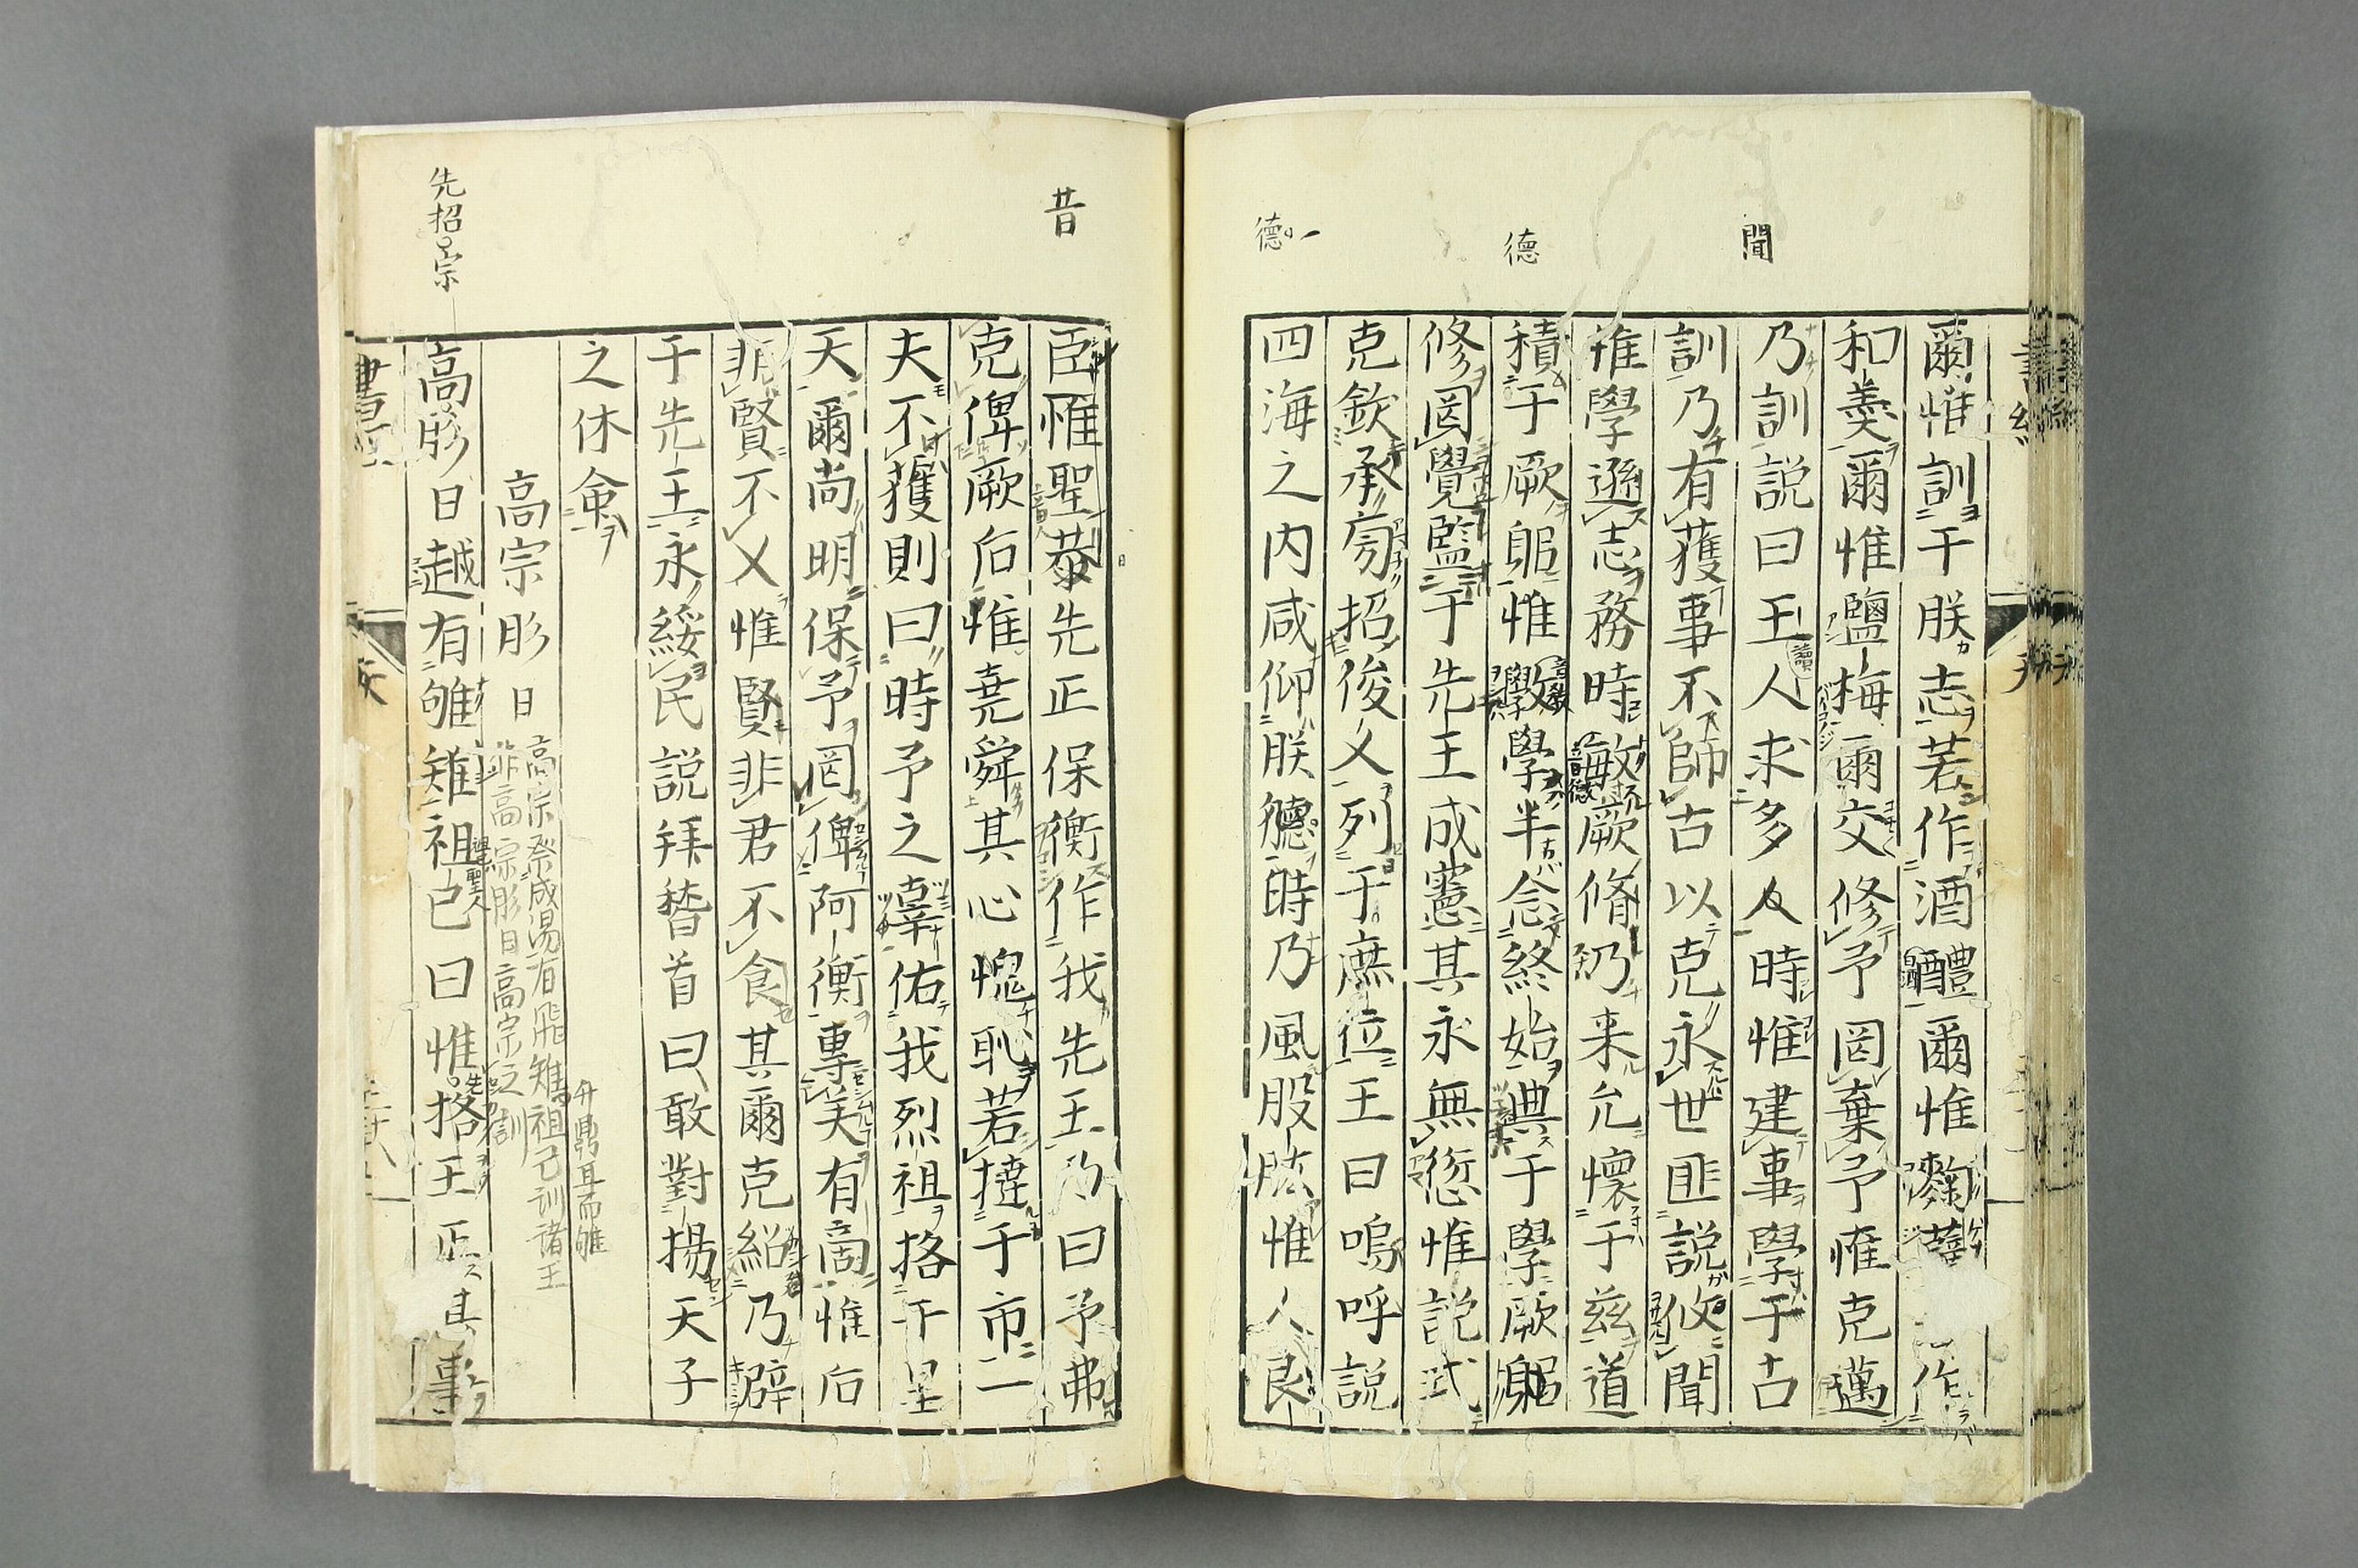 間
德
德
爾惟訓于朕志若作酒醴爾惟麴糵作
和羹爾惟鹽梅爾交修予罔棄予惟克邁
乃訓説曰王人求多聞時惟建事學于古
訓乃有獲事不師古以克永世匪説攸聞
惟學遜志務時敏厥脩乃来允懷于兹道
積于厥躬惟斆學半念終始典于學厥德
修罔覺監于先王成憲其永無愆惟説式
克欽承旁招俊乂列于庶位王曰嗚呼説
四海之内咸仰朕德時乃風股肱惟人良
昔
先招宗
臣惟聖昔先正保衡作我先王乃曰予弗
克俾厥后惟堯舜其心愧恥若撻于市一
夫不獲則曰時予之辜佑我烈祖格于皇
天爾尚明保予罔俾阿衡專美有商惟后
非賢不乂惟賢非君不食其爾克紹乃辟
于先王永綏民説拜稽首曰敢對揚天子
之休命
高宗肜日
高宗祭成湯有飛雉升鼎耳而雊祖己訓諸王
作高宗肜日高宗之訓
高肜日越有雊雉祖已曰惟格王正厥事
書經